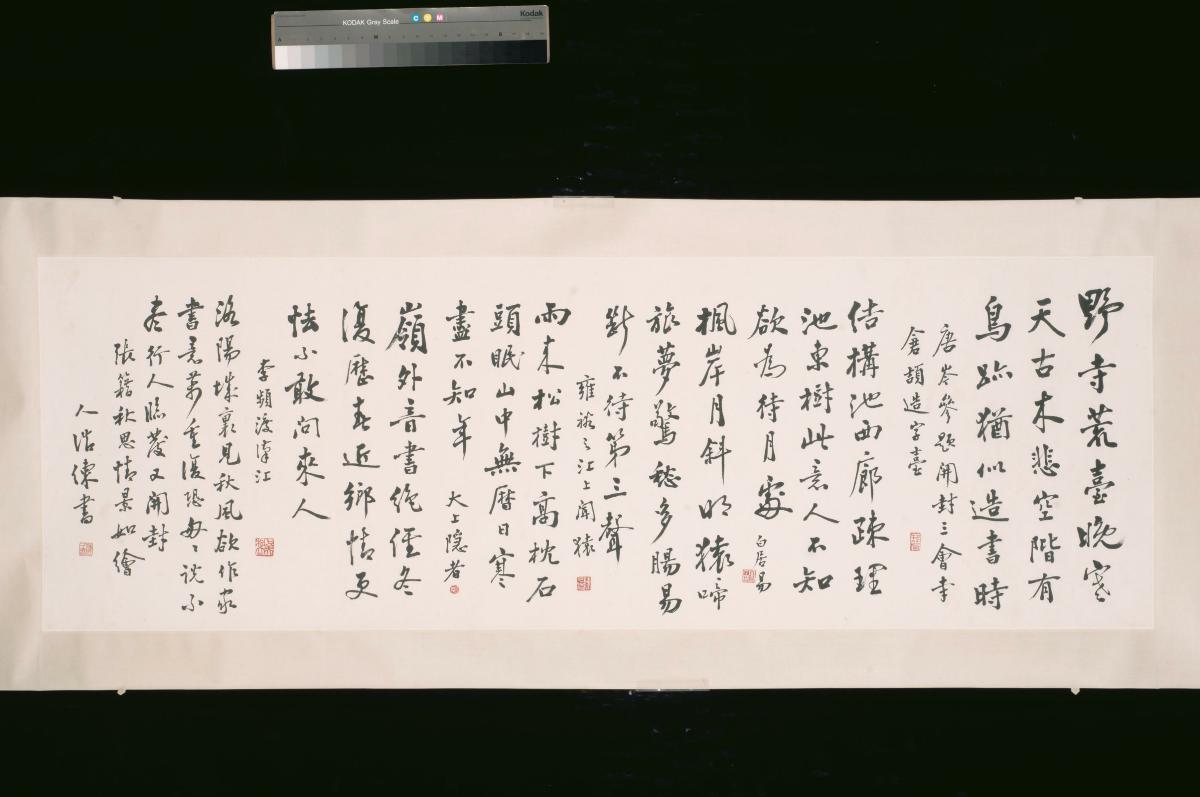 KODAK Gray Scale C Y M Kodak
A M B
野寺荒臺晚寒
天古木悲空階有
鳥跡猶似造書時
唐岑參題開封三會寺
倉頡造字臺
結構池西廊疎理
池東樹此意人不知
欲為待月處 白居易
楓岸月斜明猿啼
旅夢驚愁多腸易
斷不待第三聲
雍裕之江上聞猿
雨来松樹下高枕石
頭眠山中無曆日寒
盡不知年 大上隱者
嶺外音書絶經冬
復歷春近鄉情更
怯不敢問來人
李頻渡漢江
洛陽城裏見秋風欲作家
書意萬重復恐每〻說不
盡行人臨發又開封
張籍秋思情景如繪
人浩書